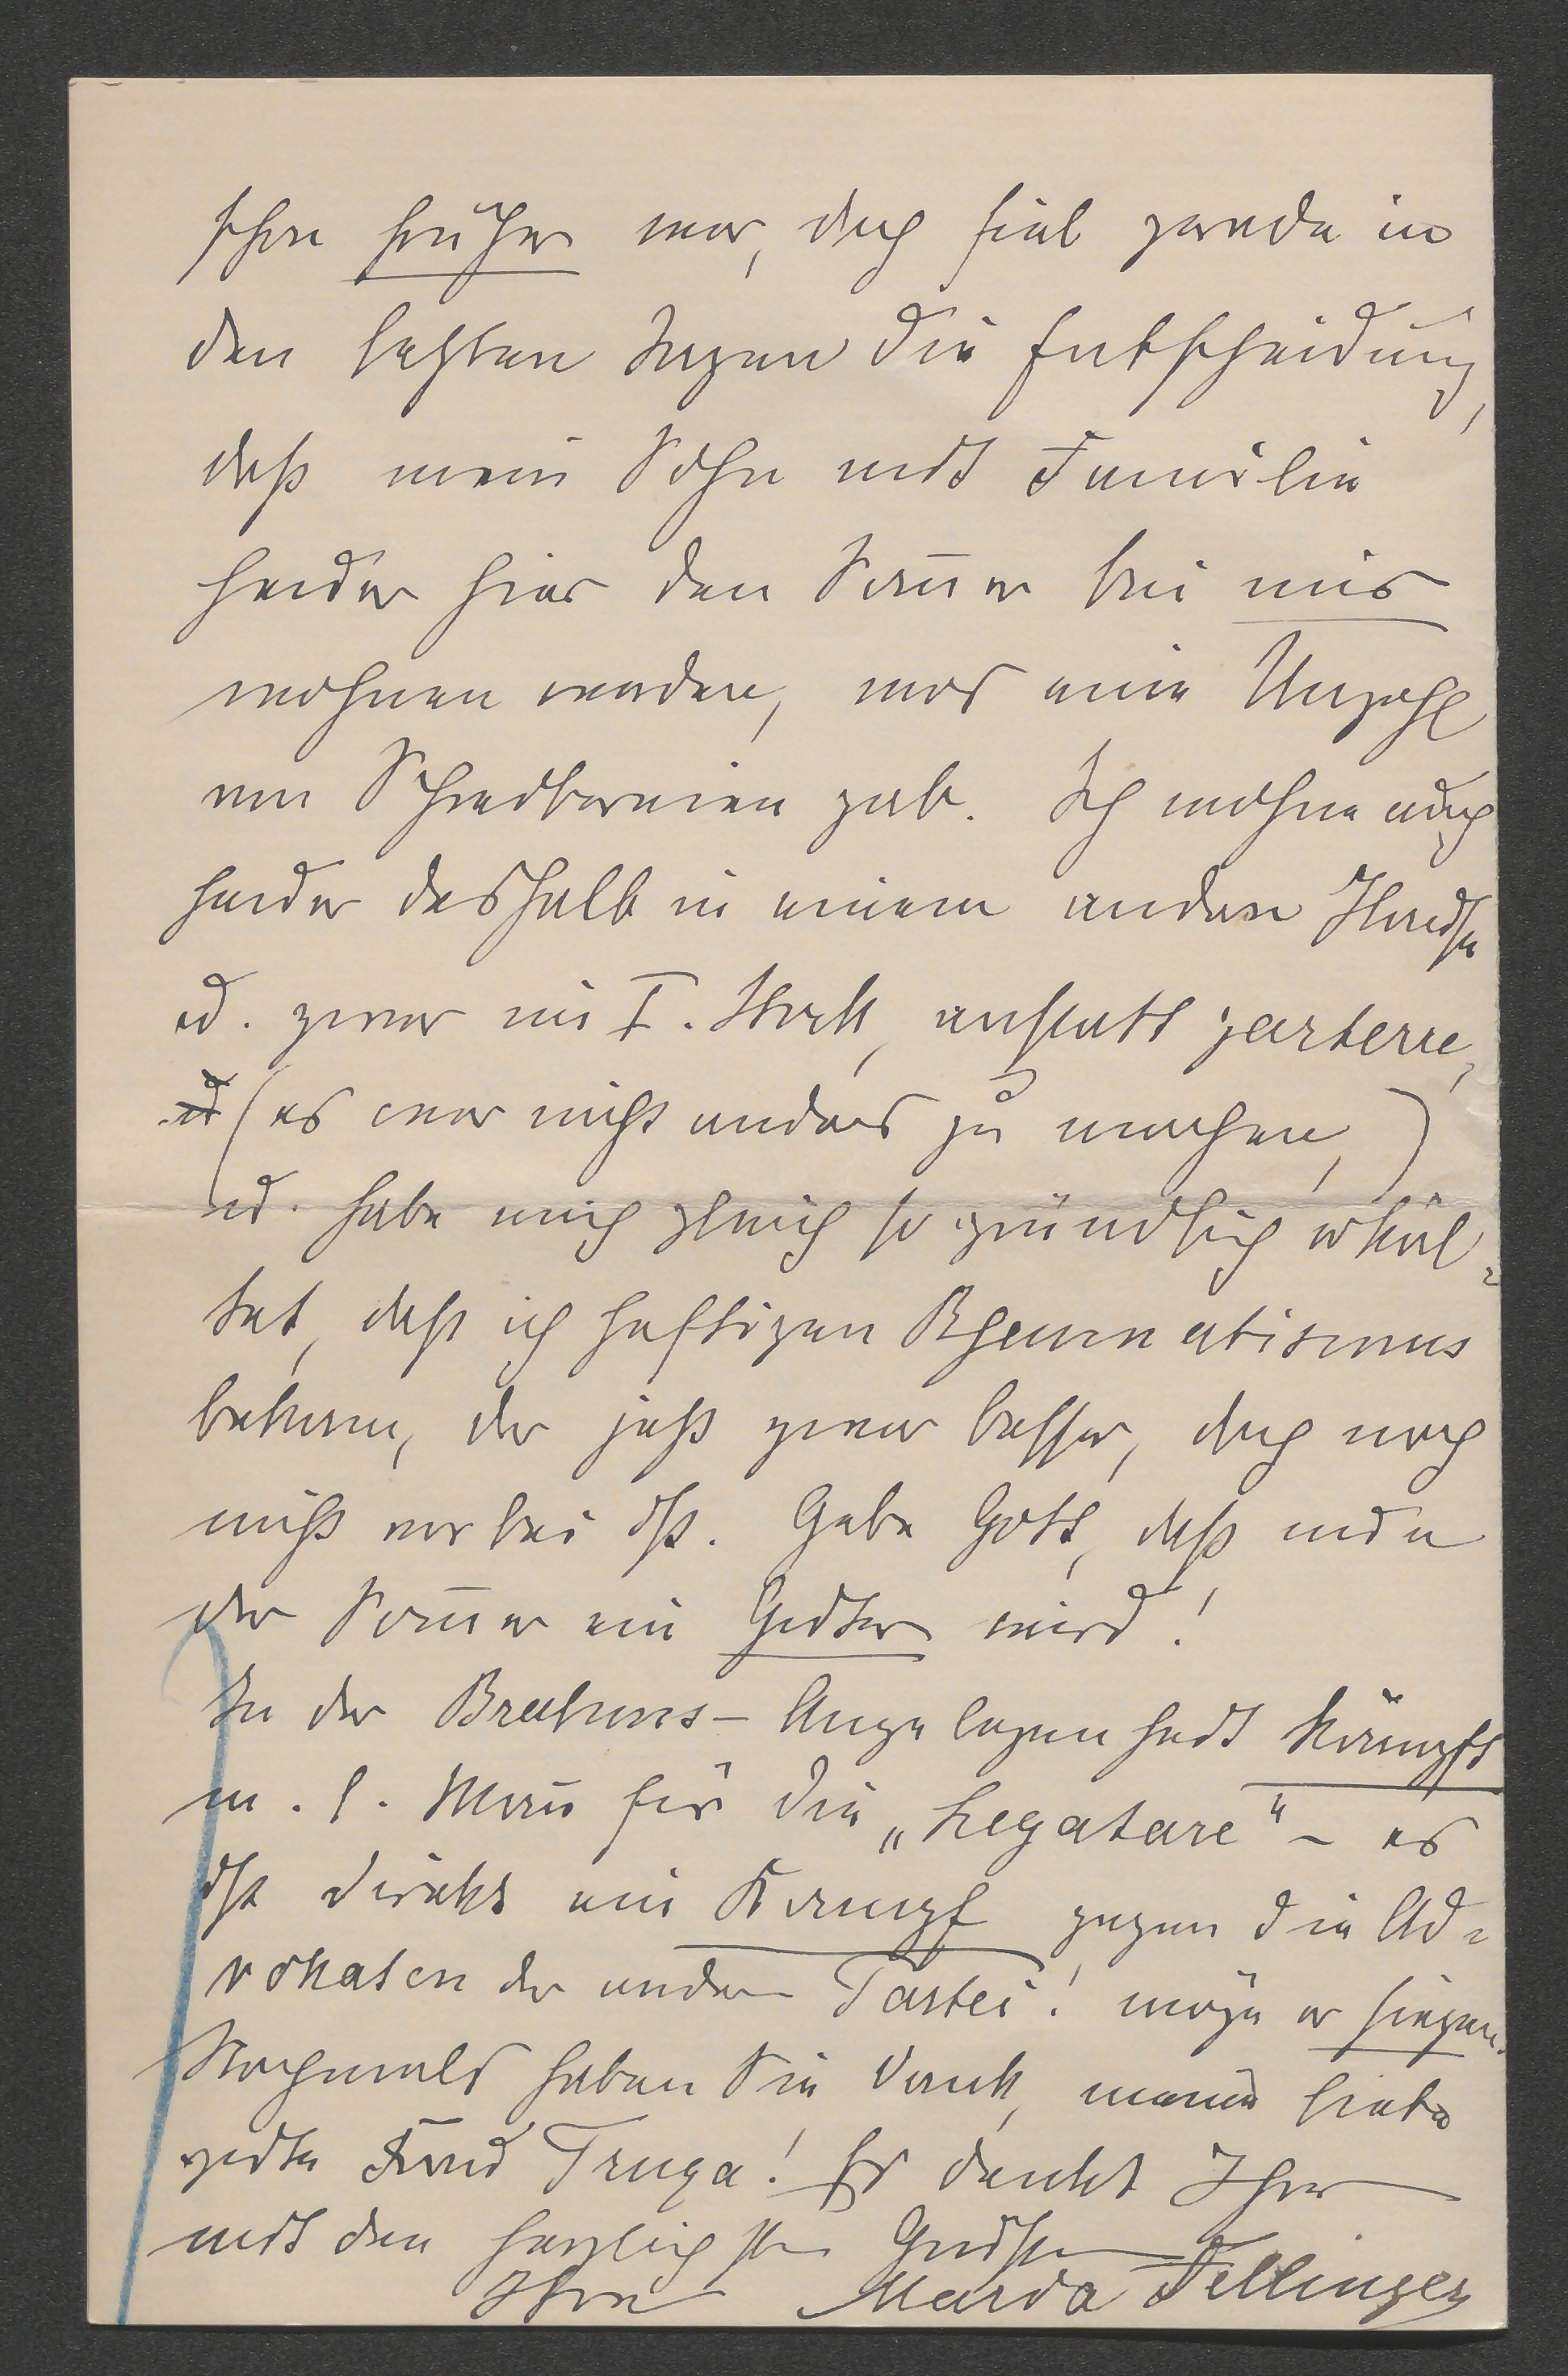 schon früher war, doch fiel gerade in
den letzten Tagen die Entscheidung,
daß mein Sohn mit Familie
heuer hier den Som̅er bei mir
wohnen werden, was eine Unzahl
von Schreibereien gab. Ich wohne auch
heuer deshalb in einem andern Hause
u. zwar im I. Stock, anstatt parterre,
u (es war nicht anders zu machen,)
u. habe mich gleich so gründlich erkäl-
tet, daß ich heftigen Rheumatismus
bekam, der jetzt zwar besser, doch noch
nicht vorbei ist. Gebe Gott, daß nun
der Som̅er ein Guter wird!
In der Brahms-Angelegenheit kämpft
m. l. Man̅ für die „Legatare" – es
ist direkt ein Kampf gegen die Ad-
vokaten der andern Partei! möge er siegen.
Nochmals haben Sie Dank, meine liebe
gute Frau Truxa! Es denkt Ihrer
mit den herzlichsten Grüßen
Ihre Maria Fellinger